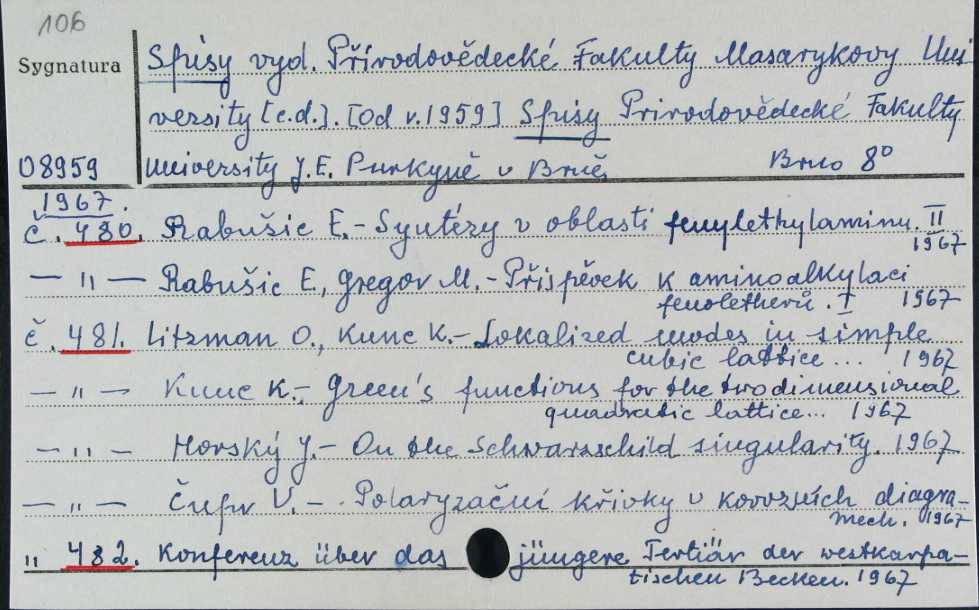 106
Sygnatura
Spisy vyd. Přírodovědecké Fakulty Masarykovy Uni
versity [c.d.]. [Od v.1959] Spisy Prirodovědecké Fakulty
08959 University J.E. Purkyně v Brně, Brno 8º
1967.
č. 480. Rabušic E.- Syntézy v oblasti fenylethylaminu. II
1967
— " — Rabušic E., Gregor M.- Příspěvek k aminoalkylaci
fenoletherů. I 1967
č. 481. Litzman O., Kunc K.- Lokalized modes in simple
cubic lattice ... 1967
— " — Kunc K.- Green's functions for the twodimensional
quadratic lattice... 1967
— " — Horský J.- On the Schwarzschild singularity. 1967
— " — Čupr V. - Polaryzační křivky v korozních diagra-
mech. 1967
" 482. Konferenz über das jüngere Tertiär der westkarpa-
tischen Becken. 1967